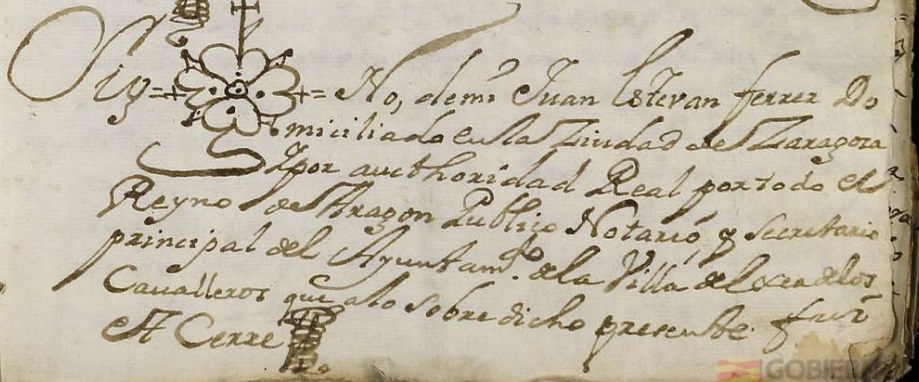 Sig = + + = No, demi Juan Estevan ferrer Do
miciliado en la Ziudad de Zaragoza
Ypor authoridad Real por todo el
Reyno de Aragon Publico Notario, y Secretario
principal del Ayuntam.to de la Villa de Exea delos
Cavalleros que alo sobre dicho presente fui
et Cerre
GOBIER